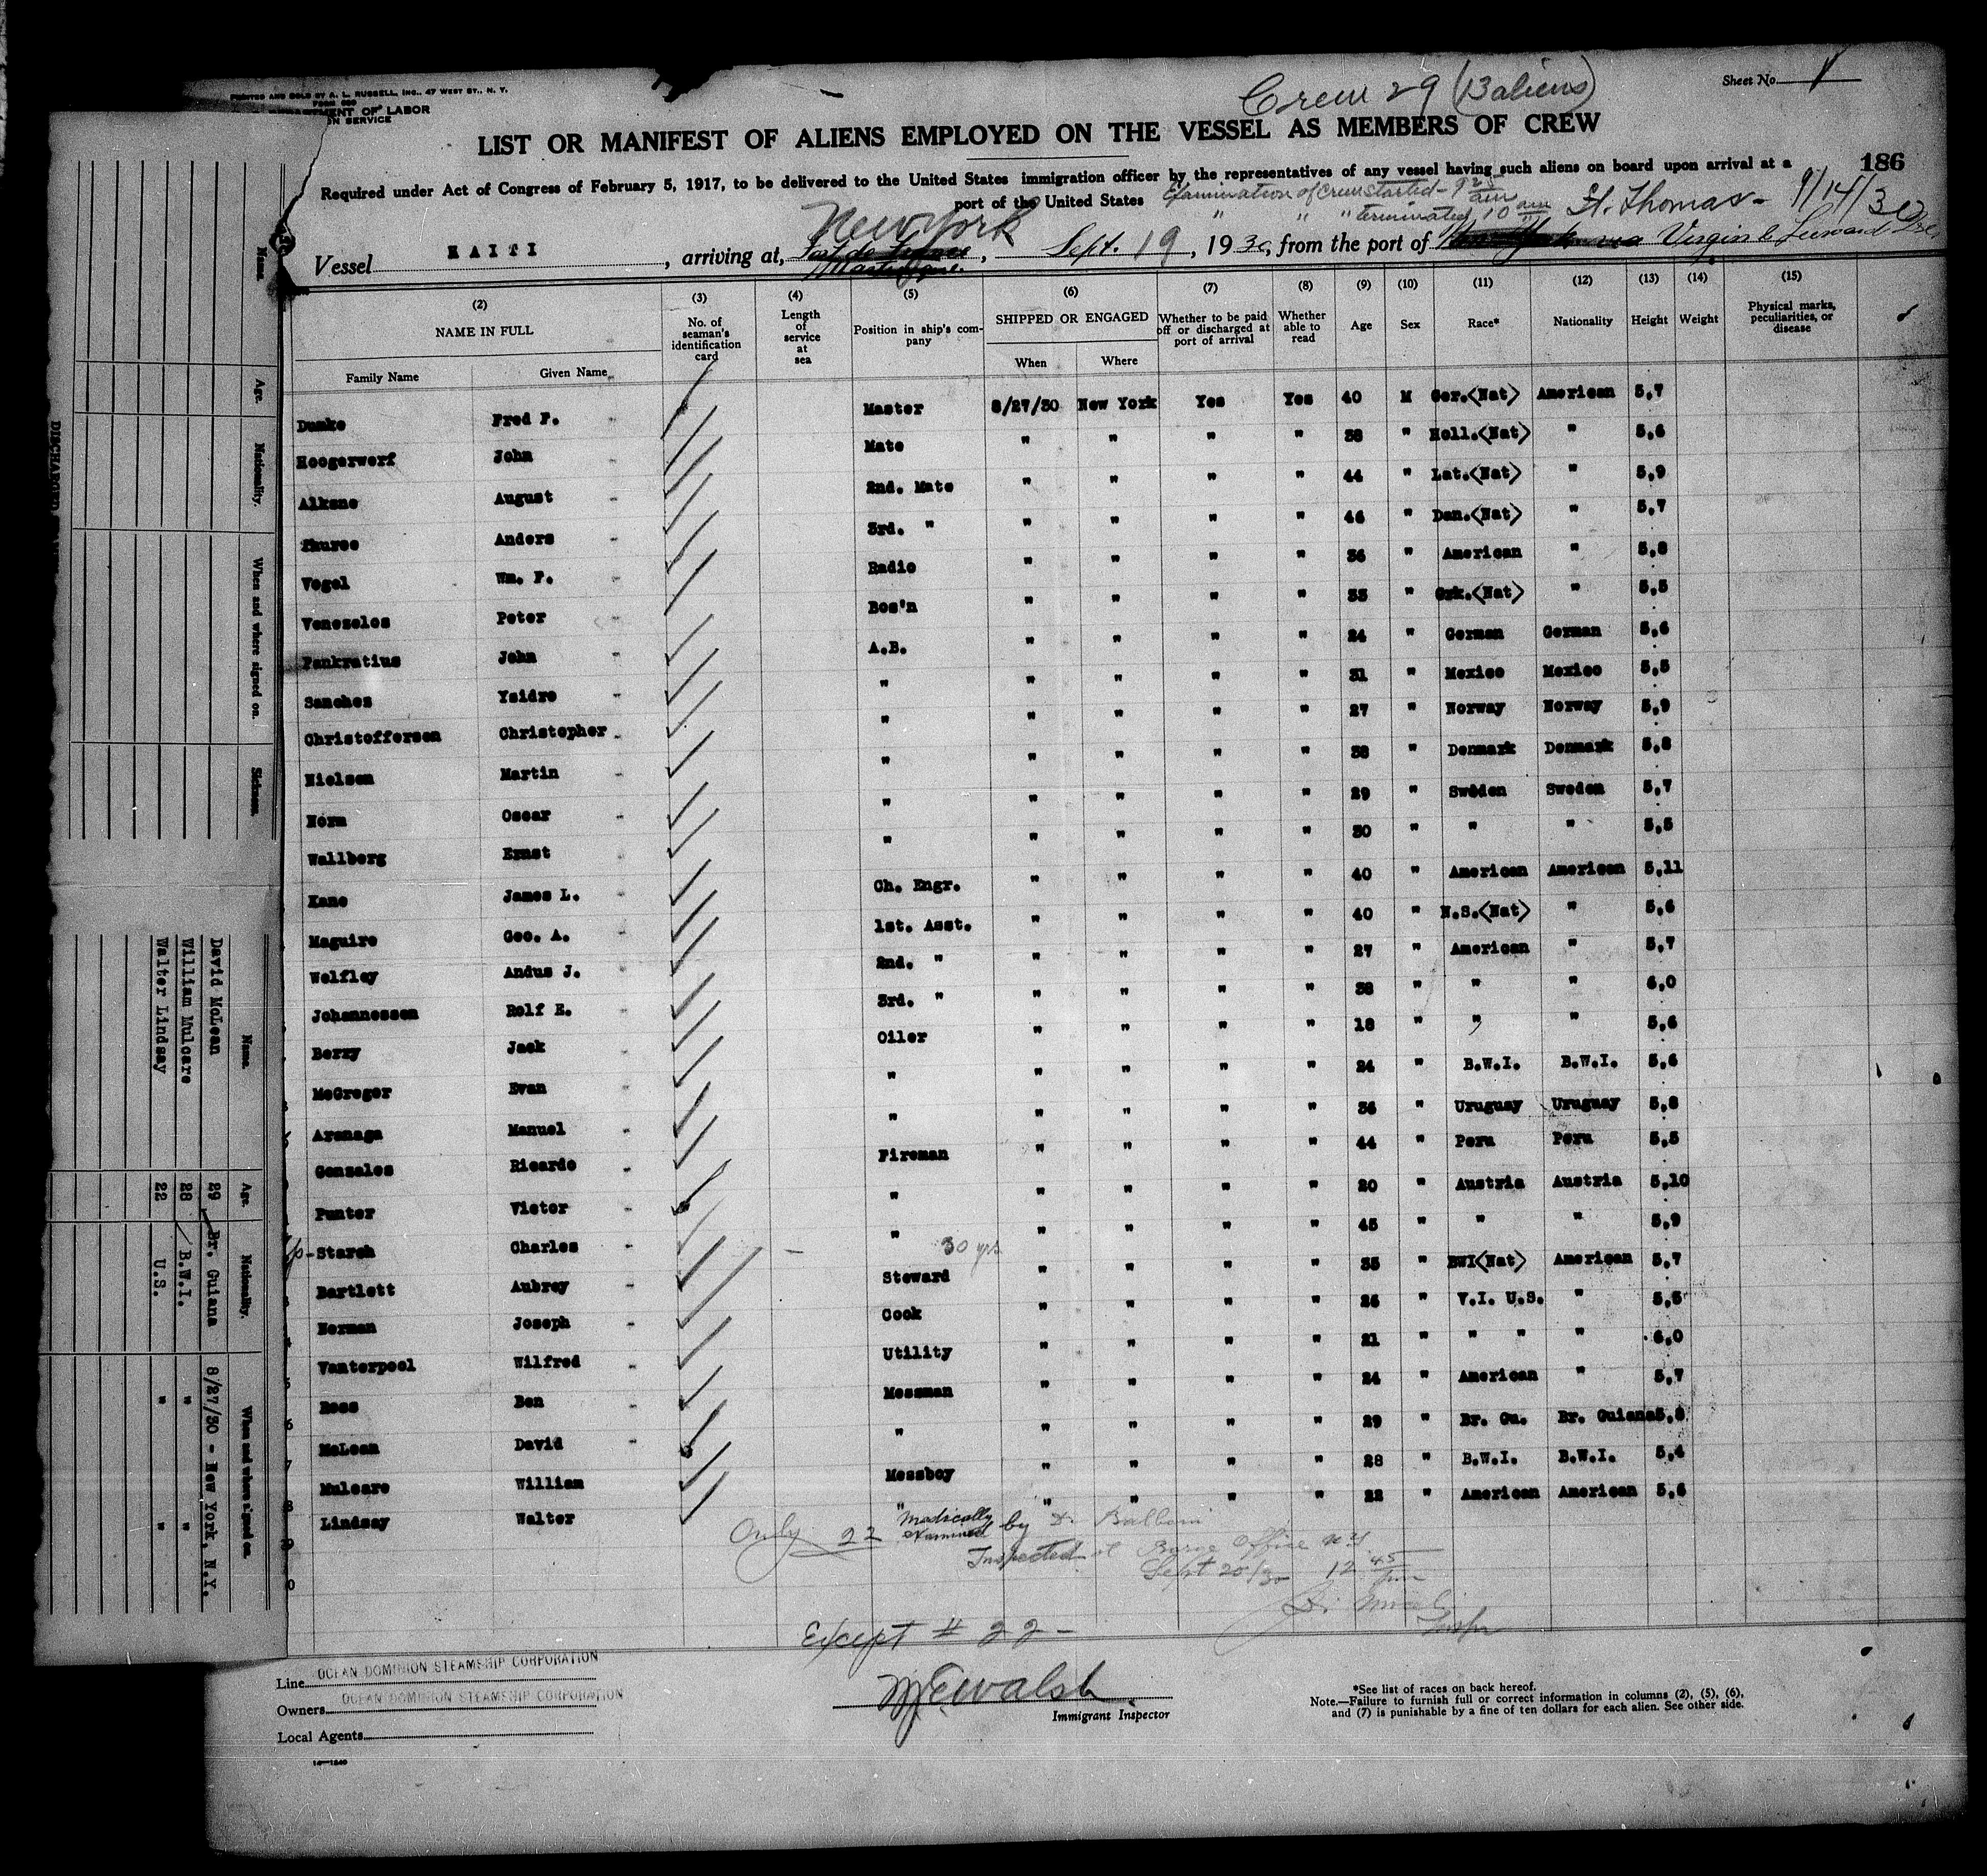 PRINTED AND SOLD BY A. L. RUSSELL, INC., 47 WEST ST., N. Y.
FORM 689
MENT OF LABOR
ON SERVICE
Crew 29 (13 aliens)
Sheet No. 1
LIST OR MANIFEST OF ALIENS EMPLOYED ON THE VESSEL AS MEMBERS OF CREW
186
Required under Act of Congress of February 5, 1917, to be delivered to the United States immigration officer by the representatives of any vessel having such aliens on board upon arrival at a
port of the United States
Examination of crew started - 9 25 am
" " " terminated 10 am
St. Thomas - 9/14/30
New York
Vessel HAITI , arriving at, Fort de France Martinique. , Sept. 19 , 1930, from the port of New York via Virgin & Leeward Isl
(2) (3) (4) (5) (6) (7) (8) (9) (10) (11) (12) (13) (14) (15)
NAME IN FULL No. of seaman's identification card Length of service at sea Position in ship's company SHIPPED OR ENGAGED Whether to be paid off or discharged at port of arrival Whether able to read Age Sex Race* Nationality Height Weight Physical marks, peculiarities, or disease
Family Name Given Name When Where
Dumke Fred F. Master 8/27/30 New York Yes Yes 40 M Ger.(Nat) American 5,7
Hoogerwerf John Mate " " " " 38 " Holl.(Nat) " 5,6
Alksne August 2nd. Mate " " " " 44 " Lat.(Nat) " 5,9
Thuroe Anders 3rd. " " " " " 46 " Dan.(Nat) " 5,7
Vogel Wm. F. Radio " " " " 36 " American " 5,8
Venezelos Peter Bos'n " " " " 35 " Grk.(Nat) " 5,5
Pankratius John A.B. " " " " 24 " German German 5,6
Sanchez Ysidro " " " " " 31 " Mexico Mexico 5,5
Christoffersen Christopher " " " " " 27 " Norway Norway 5,9
Nielsen Martin " " " " " 38 " Denmark Denmark 5,8
Horn Oscar " " " " " 29 " Sweden Sweden 5,7
Wallberg Ernst " " " " " 30 " " " 5,5
Kane James L. Ch. Engr. " " " " 40 " American American 5,11
Maguire Geo. A. 1st. Asst. " " " " 40 " N.S.(Nat) " 5,6
Wolfley Andus J. 2nd. " " " " " 27 " American " 5,7
Johannessen Rolf E. 3rd. " " " " " 38 " " " 6,0
Berry Jack Oiler " " " " 18 " " " 5,6
McGregor Evan " " " " " 24 " B.W.I. B.W.I. 5,6
Arenaga Manuel " " " " " 36 " Uruguay Uruguay 5,8
Gonzales Ricardo Fireman " " " " 44 " Peru Peru 5,5
Punter Victor " " " " " 20 " Austria Austria 5,10
Starch Charles " 30 yrs " " " " 45 " " " 5,9
Bartlett Aubrey Steward " " " " 35 " BWI(Nat) American 5,7
Herman Joseph Cook " " " " 26 " V.I. U.S. " 5,5
Vanterpool Wilfred Utility " " " " 21 " " " " 6,0
Ross Ben Messman " " " " 24 " American " 5,7
McLean David " " " " " 29 " Br. Gu. Br. Guiana 5,8
Mulcare William Messboy " " " " 28 " B.W.I. B.W.I. 5,4
Lindsay Walter " " " " " 22 " American American 5,6
Only 22 Medically examined by Dr
Inspected at Barge Office N.Y.
Sept 20/30 12 45 pm
Except # 22 -
Line OCEAN DOMINION STEAMSHIP CORPORATION
Owners OCEAN DOMINION STEAMSHIP CORPORATION
Local Agents
14—1240
M E Walsh
Immigrant Inspector
*See list of races on back hereof.
Note.—Failure to furnish full or correct information in columns (2), (5), (6),
and (7) is punishable by a fine of ten dollars for each alien. See other side.
Name. Age. Nationality. When and where signed on. Sickness.
Name. Age. Nationality. When and where signed on.
David McLean 29 Br. Guiana 8/27/30 - New York, N.Y.
William Mulcare 28 B.W.I. " "
Walter Lindsay 22 U.S. " "